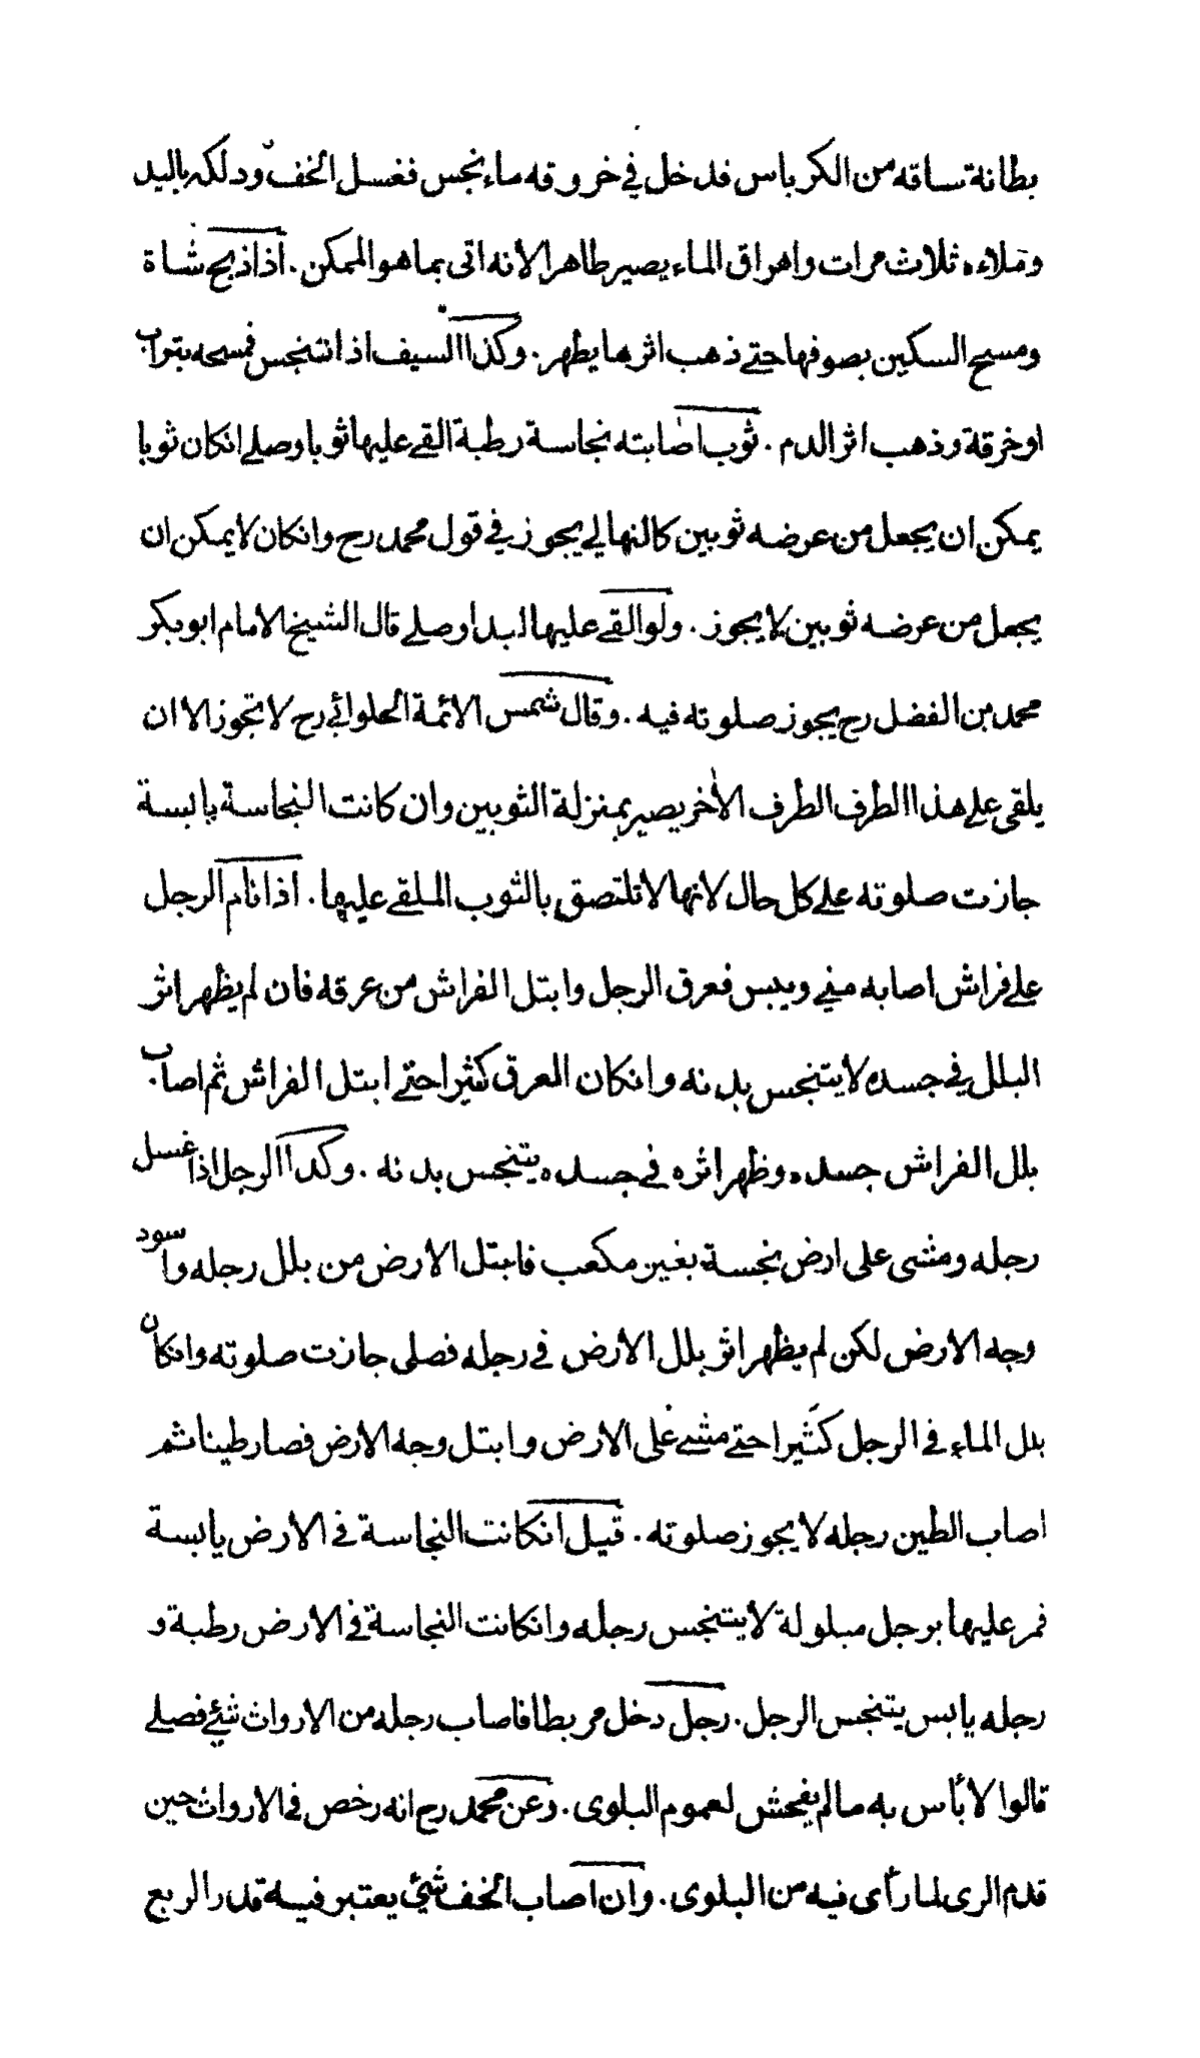 بطانة ساقه من الكرباس فدخل في خروقه ماء نجس فغسل الخف ودلكه باليد
وملاءه ثلاث مرات واهراق الماء يصير طاهرا لانه اتى بما هو الممكن . اذا ذبح شاة
ومسح السكين بصوفها حتے ذهب اثرها يطهر . وكذا السيف اذا تنجس فمسحه بتراب
او خرقة وذهب اثر الدم . ثوب اصابته نجاسة رطبة القے عليها ثوبا وصلے انكان ثوبا
يمكن ان يجعل من عرضه ثوبين كالنهالي يجوز في قول محمد رح وانكان لا يمكن ان
يجعل من عرضه ثوبين لا يجوز . ولو القے عليها لبدا وصلے قال الشيخ الامام ابو بكر
محمد بن الفضل رح يجوز صلوته فيه . وقال شمس الائمة الحلوائي رح لا تجوز الا ان
يلقى علے هذا الطرف الطرف الاخر يصير بمنزلة الثوبين وان كانت النجاسة يابسة
جازت صلوته علے كل حال لانها لا تلتصق بالثوب الملقے عليها . اذا نام الرجل
علے فراش اصابه مني ويبس فعرق الرجل وابتل الفراش من عرقه فان لم يظهر اثر
البلل في جسده لا يتنجس بدنه وانكان العرق كثيرا حتے ابتل الفراش ثم اصاب
بلل الفراش جسده وظهر اثره في جسده يتنجس بدنه . وكذا الرجل اذا غسل
رجله ومشى على ارض نجسة بغير مكعب فابتل الارض من بلل رجله واسود
وجه الارض لكن لم يظهر اثر بلل الارض في رجله فصلى جازت صلوته وانكان
بلل الماء في الرجل كثيرا حتے مشے على الارض وابتل وجه الارض فصار طينا ثم
اصاب الطين رجله لا يجوز صلوته . قيل انكانت النجاسة في الارض يابسة
فمر عليها برجل مبلولة لا يتنجس رجله وانكانت النجاسة في الارض رطبة و
رجله يابس يتنجس الرجل . رجل دخل مربطا فاصاب رجله من الارواث شئ فصلے
قالوا لا بأس به ما لم يفحش لعموم البلوى . وعن محمد رح انه رخص في الارواث حين
قدم الرى لما رأى فيه من البلوى . وان اصاب الخف شئ يعتبر فيه قدر الربع